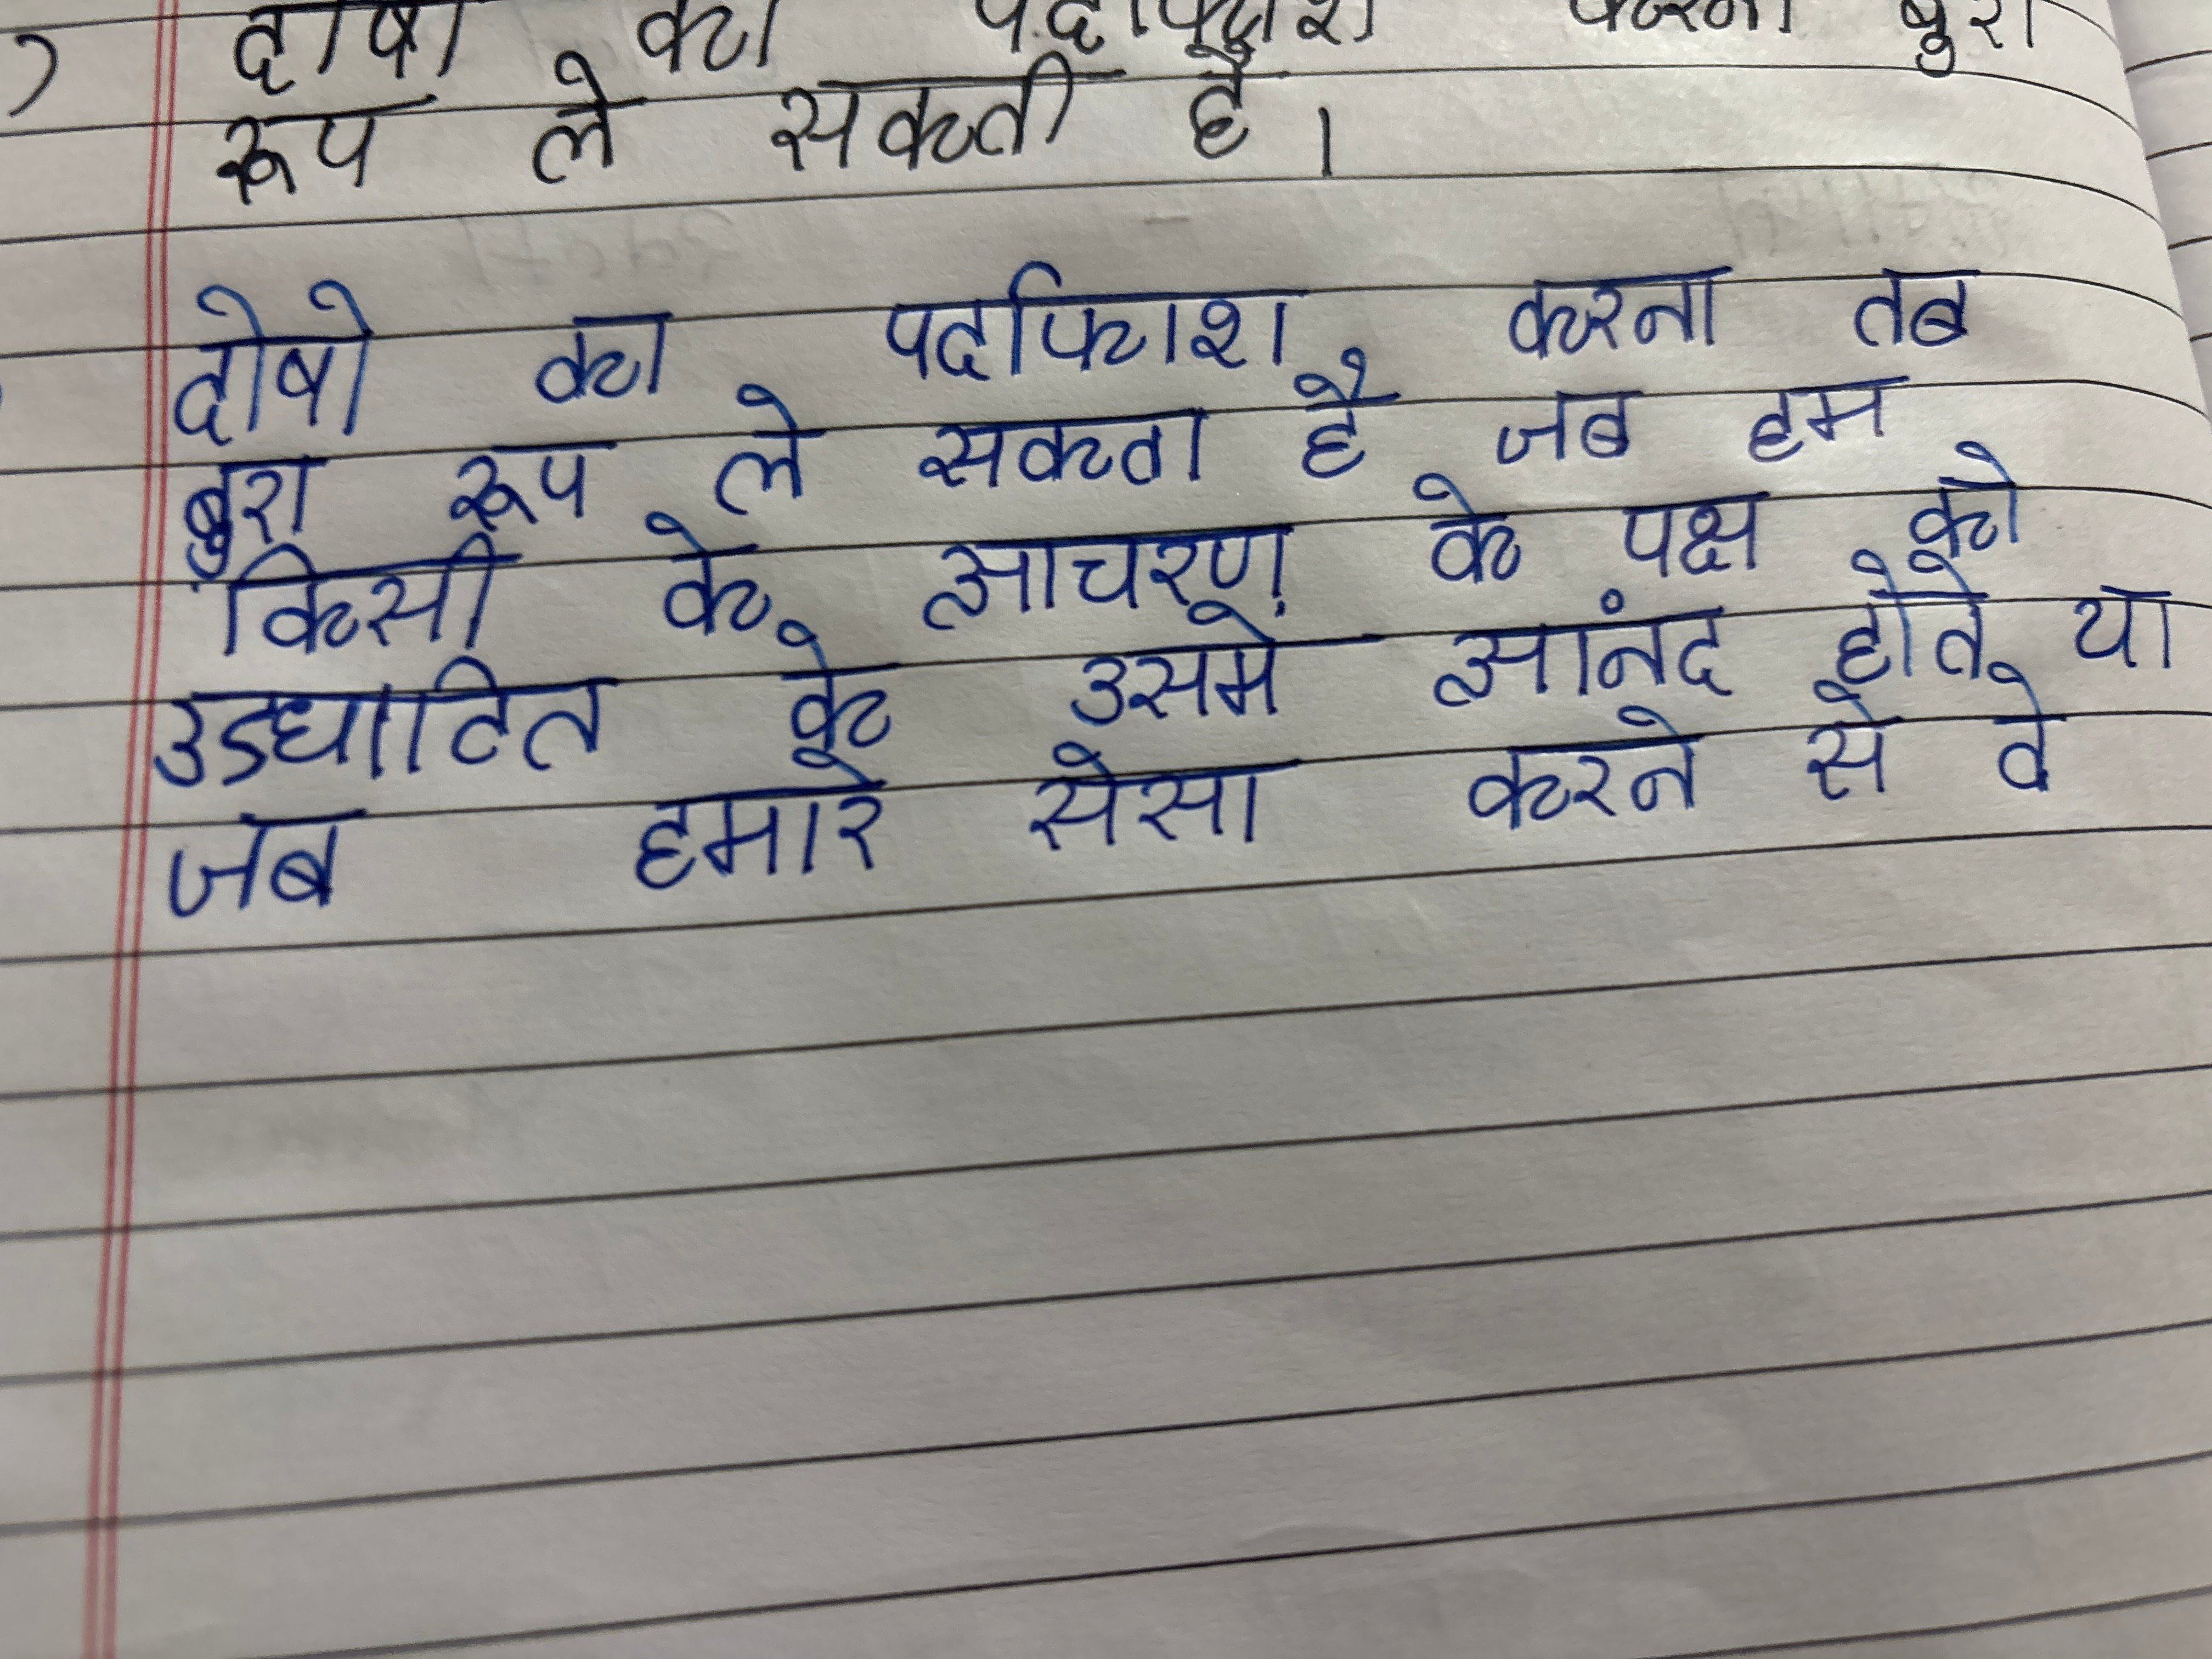 दोषो का पर्दाफाश करना बुरा
रूप ले सकती है ।
दोषो का पर्दाफाश करना तब
बुरा रूप ले सकता है जब हम
किसी के आचरण के पक्ष को
उडघाटित के उसमे आनंद होते या
जब हमारे सेसा करने से वे